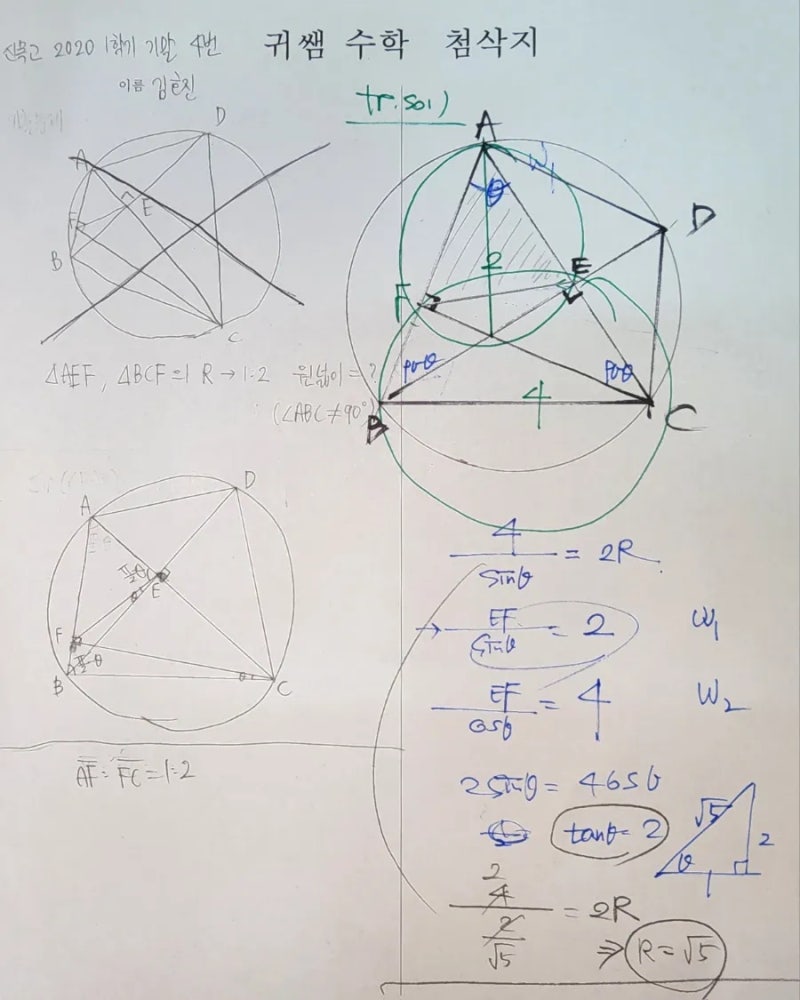 귀쌤 수학 첨삭지
2020 1학기 기말 4번
이름 김효진
D
A
E
F
B
C
△AEF, △BCF 의 R → 1:2 원넓이 = ?
(∠ABC≠90°)
A
D
E
F
B
C
π/2-θ
θ
AF : FC = 1:2
tr.sol)
A
W₁
θ
D
2
E
F
90-θ
90-θ
4
B
C
4/sinθ = 2R
→ EF/sinθ = 2 W₁
EF/cosθ = 4 W₂
2sinθ = 4cosθ
tanθ = 2
√5
2
θ
1
4/(2/√5) = 2R
2
⇒ R = √5